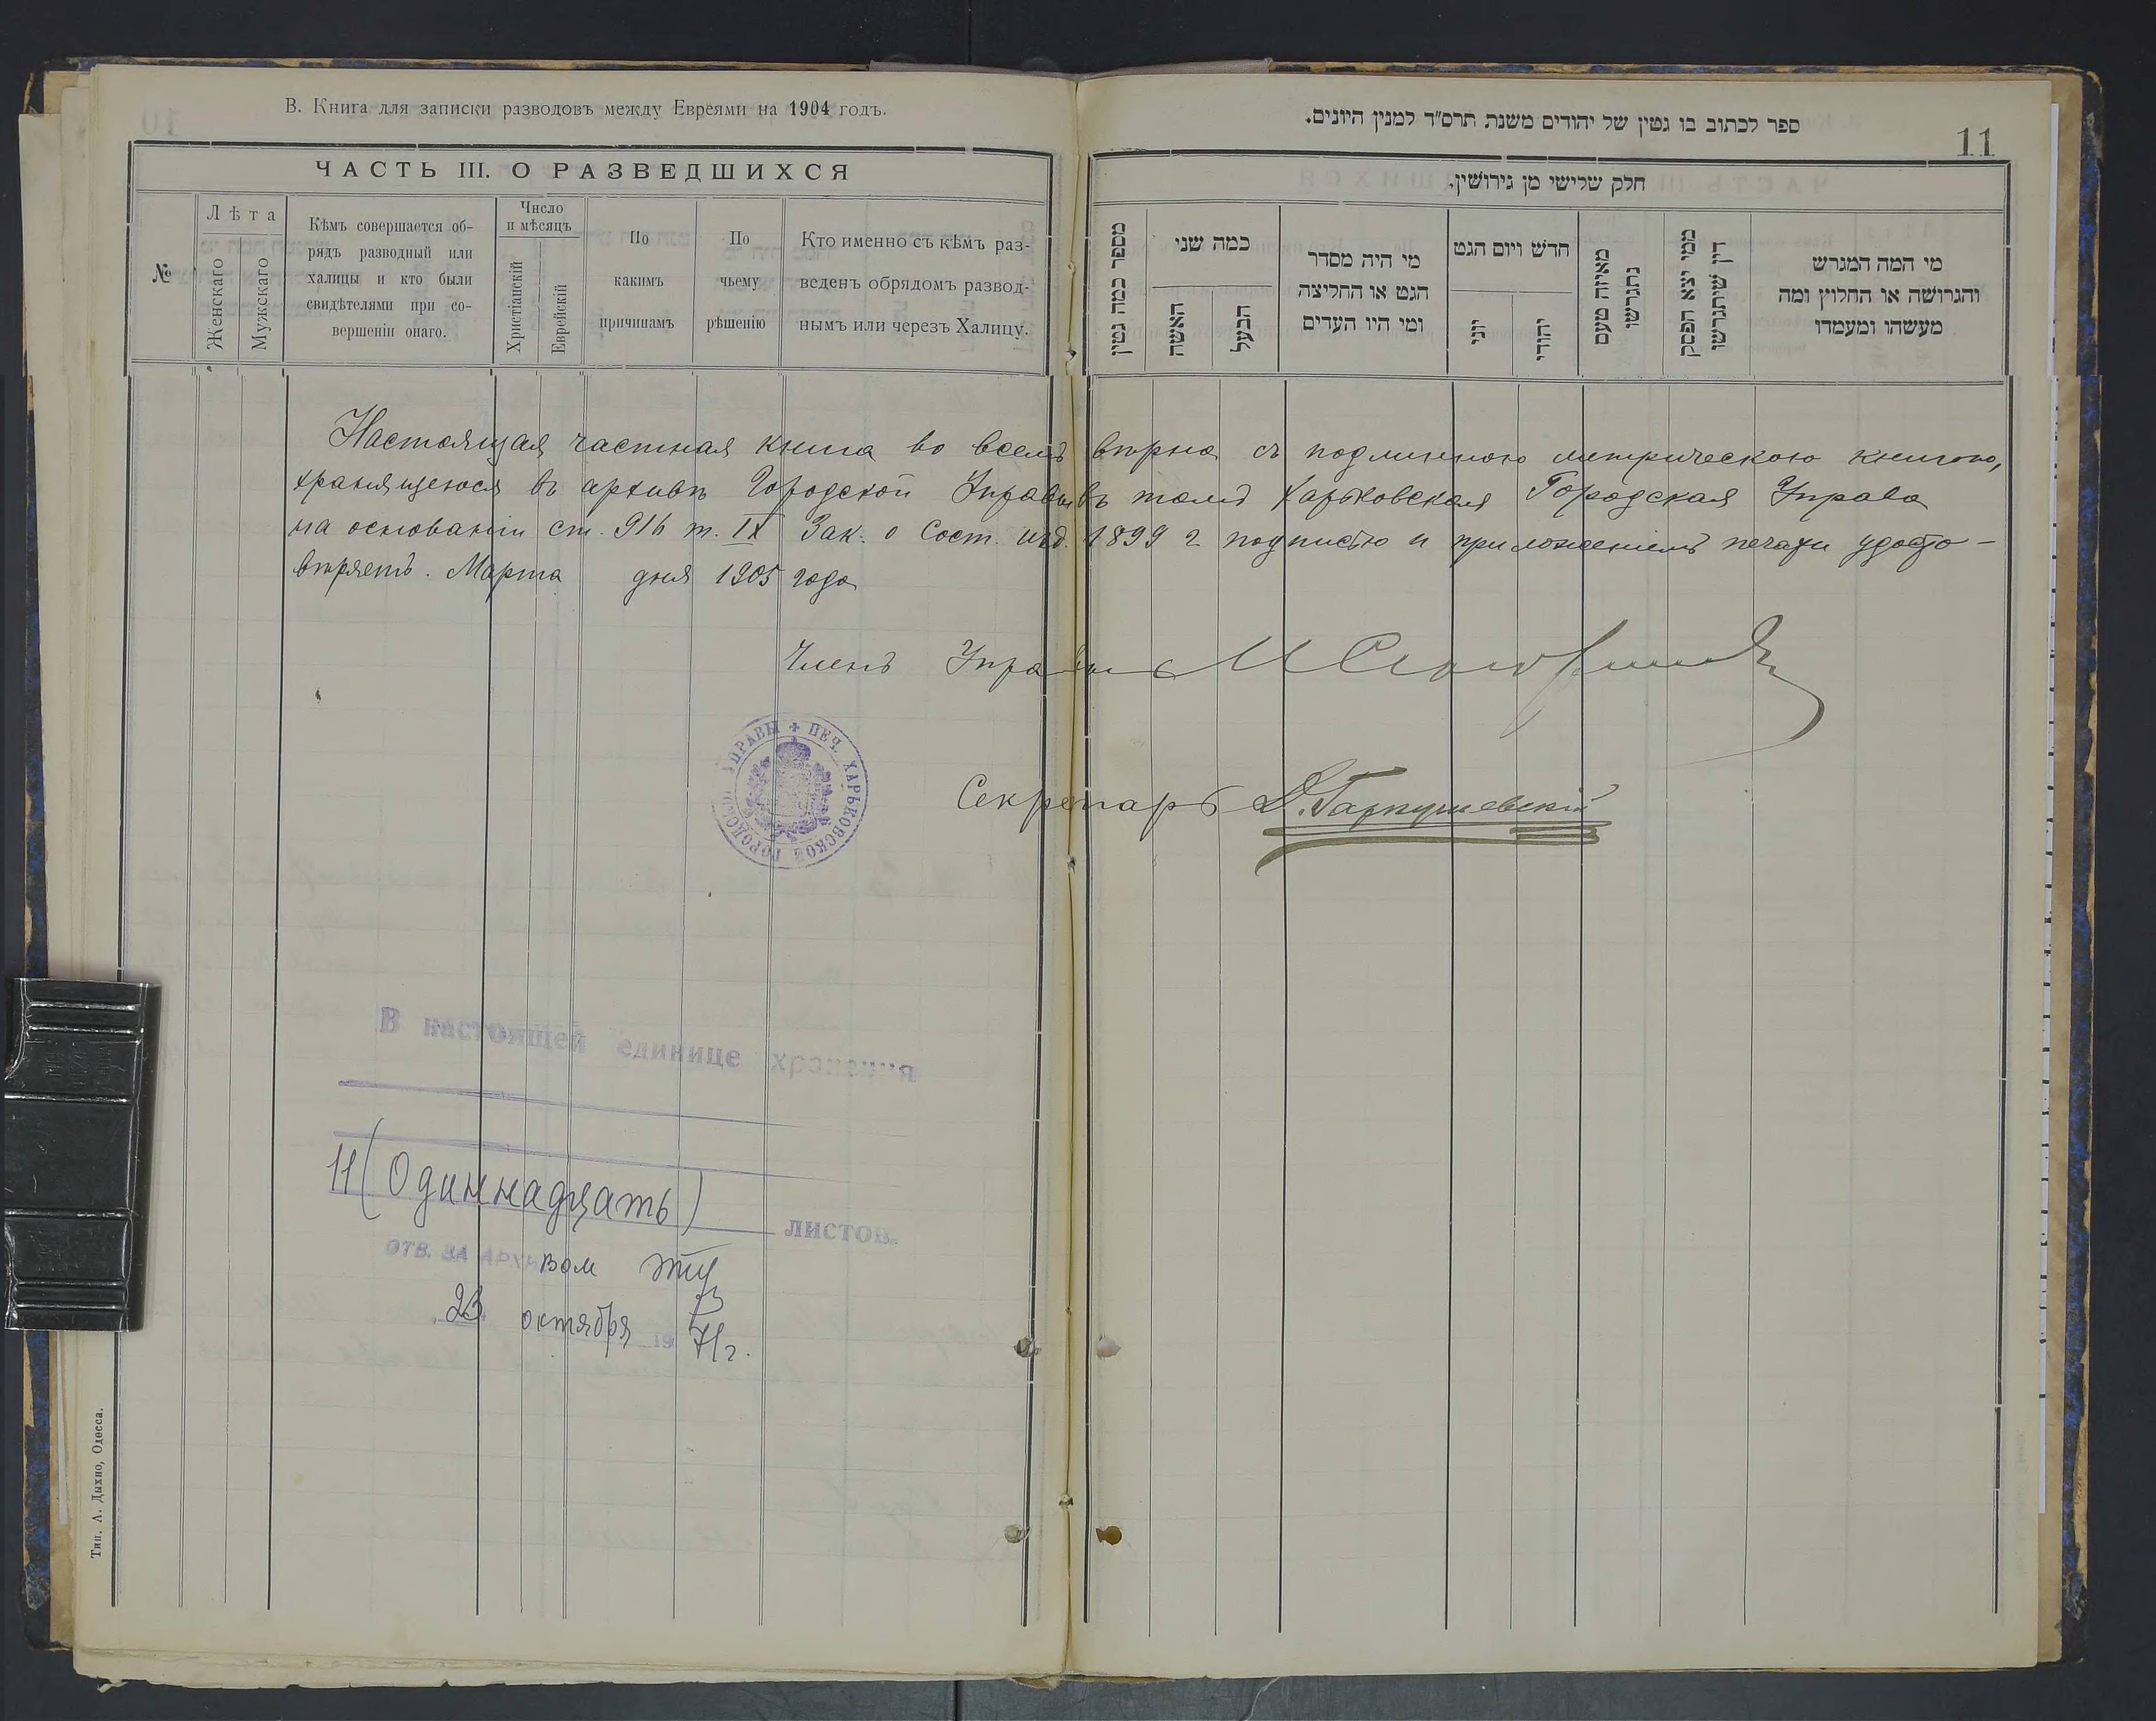 В. Книга для записки разводовъ между Евреями на 1904 годъ.
ЧАСТЬ III. О РАЗВЕДШИХСЯ
№
Лѣта
Женскаго
Мужскаго
Кѣмъ совершается об-
рядъ разводный или
халицы и кто были
свидѣтелями при со-
вершеніи онаго.
Число
и мѣсяцъ
Христіанскій
Еврейскій
По
какимъ
причинамъ
По
чьему
рѣшенію
Кто именно съ кѣмъ раз-
веденъ обрядомъ развод-
нымъ или черезъ Халицу.
ספר לכתוב בו גטין של יהודים משנת תרס״ד למנין היונים.
11
חלק שלישי מן גירושין.
מספר כמה גטין
כמה שני
האשה
הבעל
מי היה מסדר
הגט או החליצה
ומי היו העדים
חדש ויום הגט
יוני
יהודי
מאיזה טעם
נתגרשו
ממי יצא הפסק
דין שיתגרשו
מי המה המגרש
והגרושה או החלוץ ומה
מעשהו ומעמדו
Настоящая частная книга во всемъ вѣрна съ подлинною метрическою книгою,
хранящеюся въ архивѣ Городской Управы въ томъ Харьковская Городская Управа
на основаніи ст. 916 т. IX Зак. о Сост. изд. 1899 г. подписью и приложеніемъ печати удосто-
вѣряетъ. Марта дня 1905 года
Членъ Управы
Секретарь
ПЕЧ. ХАРЬКОВСКОЙ ГОРОДСКОЙ УПРАВЫ
В настоящей единице хранения
11 (Одиннадцать) листов.
ОТВ. ЗА АРХивом
23 октября 1971 г.
Тип. А. Дыхно, Одесса.